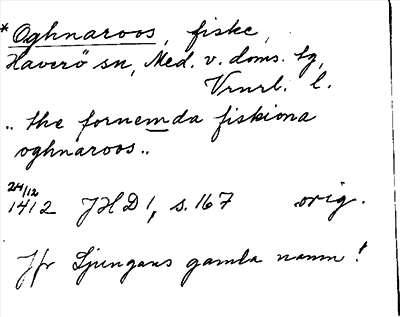 * Oghnaroos, fiske,
Haverö sn, Med. v. doms. tg,
Vrnrl. l.
.. the fornemda fiskiona
oghnaroos..
24/12
1412 JHD 1, s. 167 orig.
Jfr Ljungans gamla namn!